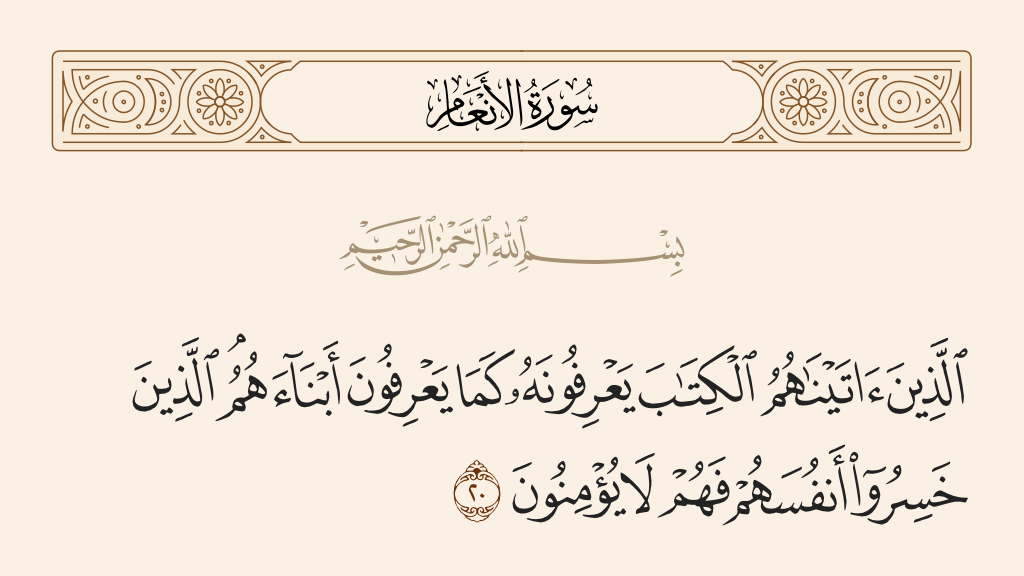 سُورَةُ الأَنْعَامِ
بِسْمِ ٱللَّهِ ٱلرَّحْمَٰنِ ٱلرَّحِيمِ
ٱلَّذِينَ ءَاتَيْنَٰهُمُ ٱلْكِتَٰبَ يَعْرِفُونَهُۥ كَمَا يَعْرِفُونَ أَبْنَآءَهُمُ ۘ ٱلَّذِينَ
خَسِرُوٓا۟ أَنفُسَهُمْ فَهُمْ لَا يُؤْمِنُونَ ٢٠